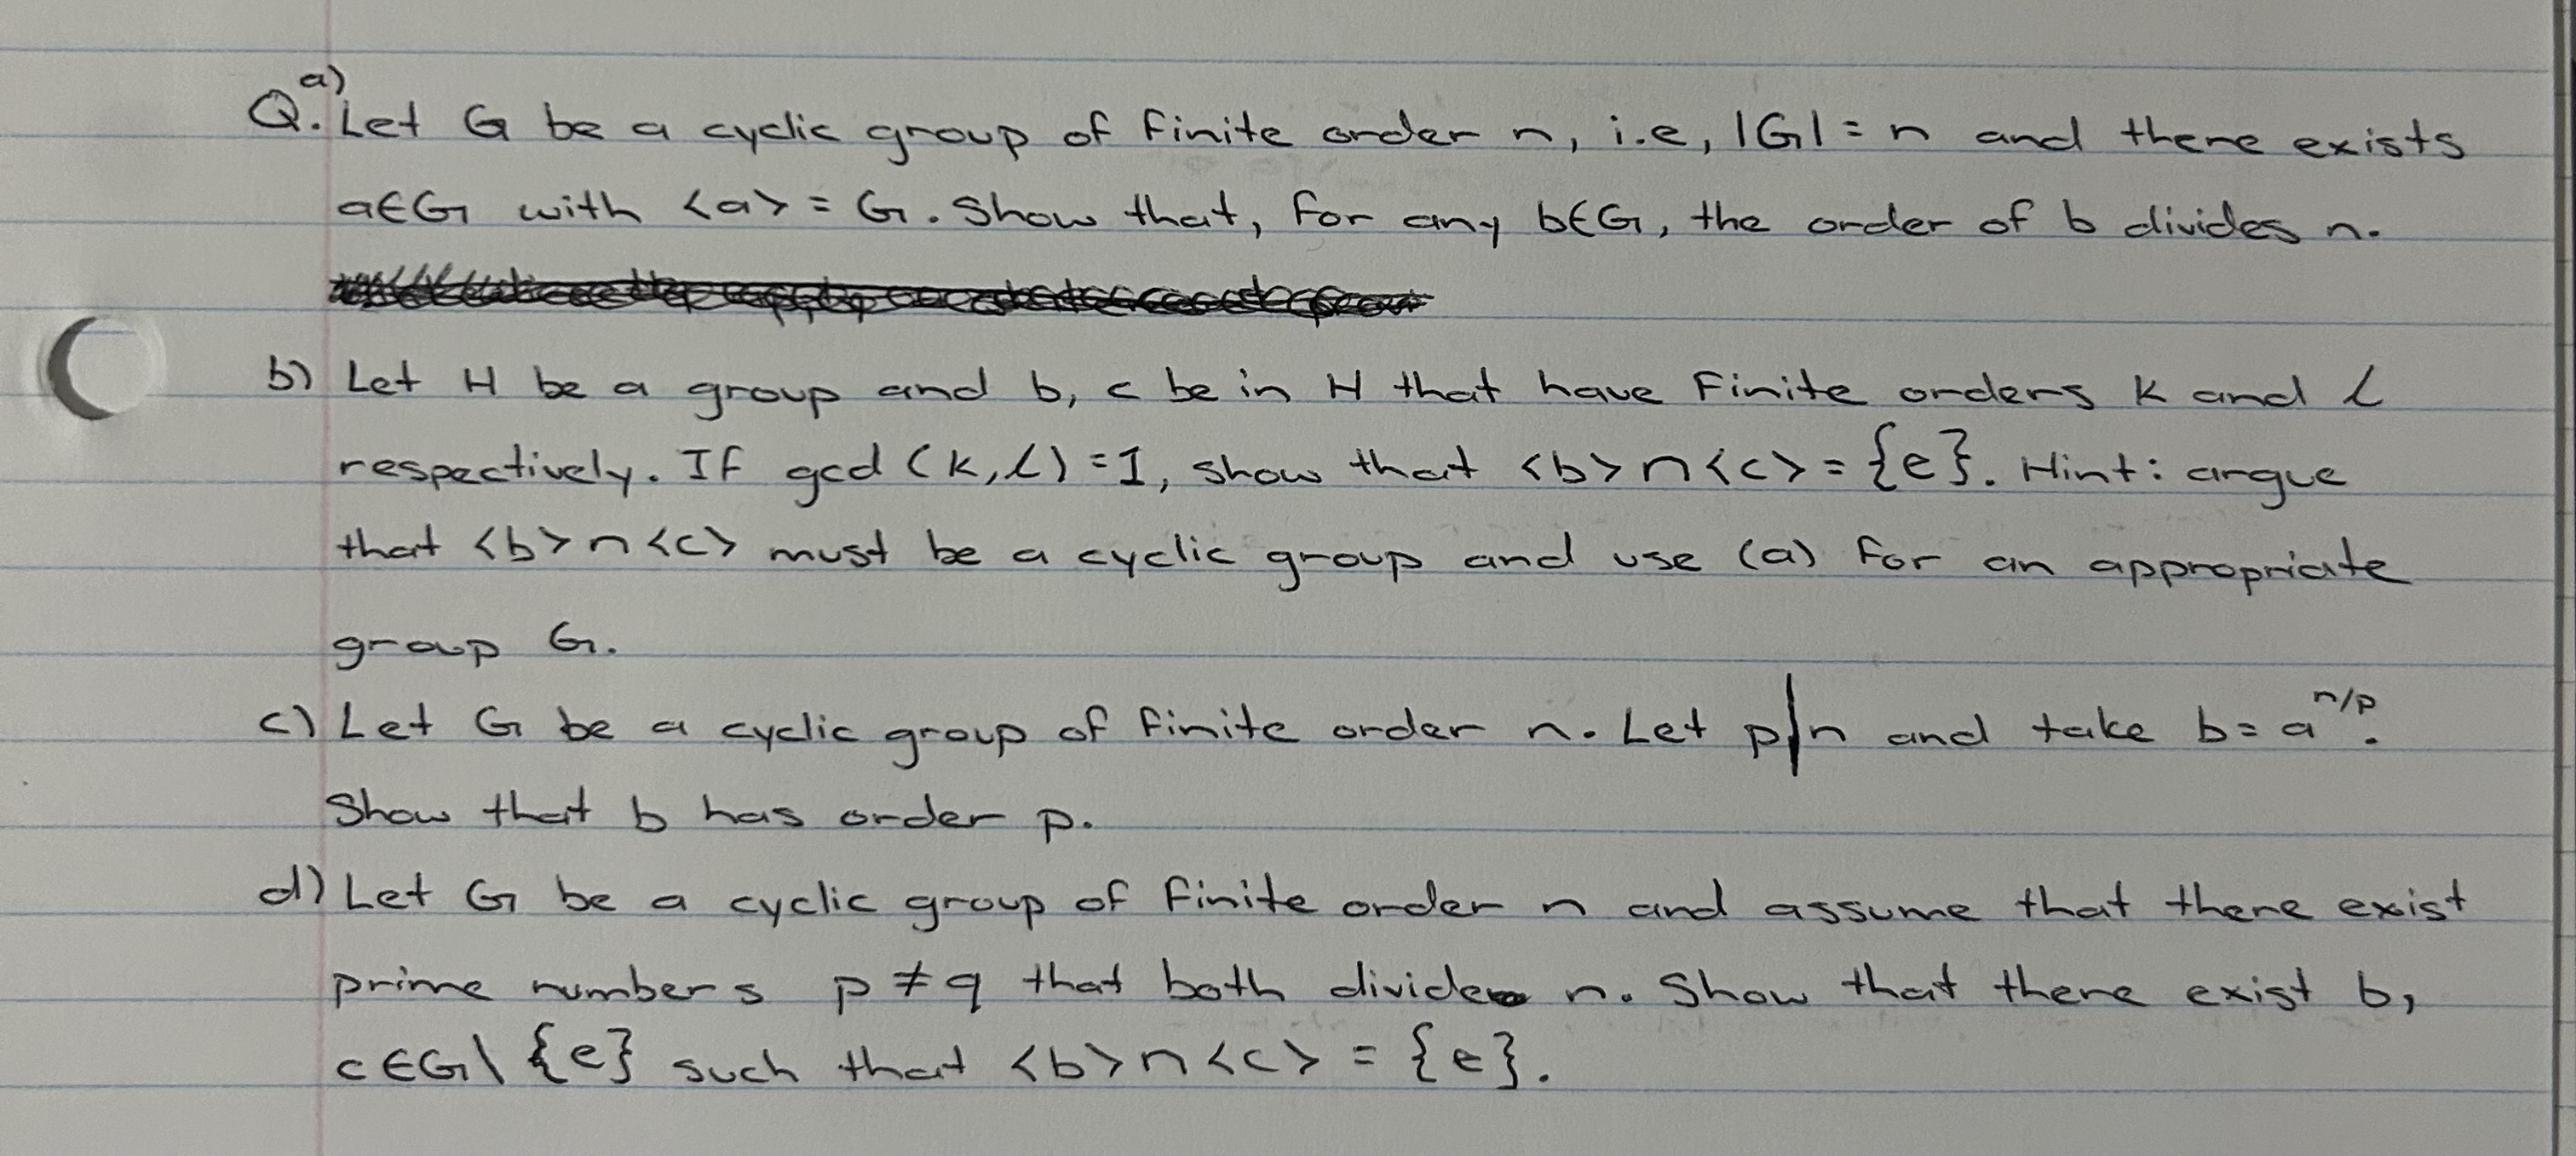 a)
Q. Let G be a cyclic group of finite order n, i.e, |G| = n and there exists
a∈G with <a> = G. Show that, for any b∈G, the order of b divides n.
b) Let H be a group and b, c be in H that have finite orders k and l
respectively. If gcd (k, l) = 1, show that <b> ∩ <c> = {e}. Hint: argue
that <b> ∩ <c> must be a cyclic group and use (a) for an appropriate
group G.
c) Let G be a cyclic group of finite order n. Let p|n and take b = a^n/p.
Show that b has order p.
d) Let G be a cyclic group of finite order n and assume that there exist
prime numbers p ≠ q that both divide n. Show that there exist b,
c ∈ G \ {e} such that <b> ∩ <c> = {e}.